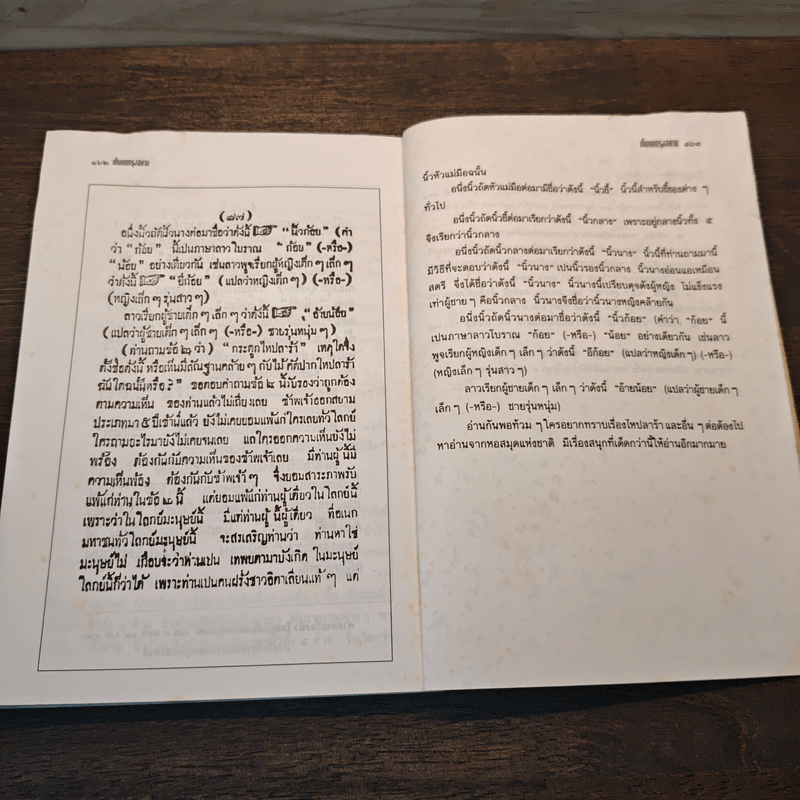 ๑๖๒
(๘๗)
อนึ่งนิ้วถัดนิ้วนางต่อมาชื่อว่าดังนี้ "นิ้วก้อย" (คำ
ว่า "ก้อย" นี้เปนภาษาลาวโบราณ "ก้อย" (-หรือ-)
"น้อย" อย่างเดียวกัน เช่นลาวพูจเรียกผู้หญิงเด็ก ๆ เล็ก ๆ
ว่าดังนี้ "ยี่ก้อย" (แปลว่าหญิงเด็ก ๆ) (-หรือ-)
(หญิงเล็ก ๆ รุ่นสาว ๆ)
ลาวเรียกผู้ชายเด็ก ๆ เล็ก ๆ ว่าดังนี้ "อ้ายน้อย"
(แปลว่าผู้ชายเด็ก ๆ เล็ก ๆ (-หรือ-) ชายรุ่นหนุ่ม ๆ)
(ท่านถามข้อ ๒ ว่า) "กระดูกไหปลาร้า" เหตุใดจึ่ง
ตั้งชื่อดังนี้ หรือเห็นมีสัณฐานคล้าย ๆ กับไม้คีที่ปากไหปลาร้า
ฉนี้ใดฉนั้นฤๅหรือ ? " ขอตอบคำถามข้อ ๒ นี้รับรองว่าถูกต้อง
ตามความเห็น ของท่านแล้วไม่เถียงเลย ข้าพเจ้าออกสยาม
ประเภทมา ๕ ปีเข้านี่แล้ว ยังไม่เคยยอมแพ้แก่ใครเลยทั่วโลกย์
ใครถามอะไรมายังไม่เคยจนเลย แลใครออกความเห็นยังไม่
พร้อง ต้องกันกับความเห็นของข้าพเจ้าเลย มีท่านผู้นี้มี
ความเห็นพ้อง ต้องกันกับข้าพเจ้า ๆ จึ่งยอมสารภาพรับ
แพ้แก่ท่านในข้อ ๒ นี้ แต่ยอมแพ้แก่ท่านผู้เดียวในโลกย์นี้
เพราะว่าในโลกย์มะนุษย์นี้ มีแต่ท่านผู้นี้ผู้เดียว ที่อเนก
มหาชนทั่วโลกย์มะนุษย์นี้ จะสรเสริญท่านว่า ท่านหาใช่
มะนุษย์ไม่ เกือบจะว่าท่านเปน เทพยดามาบังเกิด ในมะนุษย์
โลกย์นี้ก็ว่าได้ เพราะท่านเปนคนฝรั่งชาวอิตาเลี่ยนแท้ ๆ แต่
๑๖๓
นิ้วหัวแม่มือฉนั้น
อนึ่งนิ้วถัดหัวแม่มือต่อมามีชื่อว่าดังนี้ "นิ้วชี้" นิ้วนี้สำหรับชี้ของต่าง ๆ
ทั่วไป
อนึ่งนิ้วถัดนิ้วชี้ต่อมาเรียกว่าดังนี้ "นิ้วกลาง" เพราะอยู่กลางนิ้วทั้ง ๕
จึงเรียกว่านิ้วกลาง
อนึ่งนิ้วถัดนิ้วกลางต่อมาเรียกว่าดังนี้ "นิ้วนาง" นิ้วนี้ที่ท่านถามมานี้
มีวิธีที่จะตอบว่าดังนี้ "นิ้วนาง" เปนนิ้วรองนิ้วกลาง นิ้วนางอ่อนแอเหมือน
สตรี จึงได้ชื่อว่าดังนี้ "นิ้วนาง" นิ้วนางนี้เปรียบดุจดังผู้หญิง ไม่แข็งแรง
เท่าผู้ชาย ๆ คือนิ้วกลาง นิ้วนางจึงชื่อว่านิ้วนางหญิงคล้ายกัน
อนึ่งนิ้วถัดนิ้วนางต่อมาชื่อว่าดังนี้ "นิ้วก้อย" (คำว่า "ก้อย" นี้
เปนภาษาลาวโบราณ "ก้อย" (-หรือ-) "น้อย" อย่างเดียวกัน เช่นลาว
พูจเรียกผู้หญิงเด็ก ๆ เล็ก ๆ ว่าดังนี้ "อีก้อย" (แปลว่าหญิงเด็ก ๆ) (-หรือ-)
(หญิงเล็ก ๆ รุ่นสาว ๆ)
ลาวเรียกผู้ชายเด็ก ๆ เล็ก ๆ ว่าดังนี้ "อ้ายน้อย" (แปลว่าผู้ชายเด็ก ๆ
เล็ก ๆ (-หรือ-) ชายรุ่นหนุ่ม)
อ่านกันพอท้วม ๆ ใครอยากทราบเรื่องไหปลาร้า และอื่น ๆ ต่อต้องไป
หาอ่านจากหอสมุดแห่งชาติ มีเรื่องสนุกที่เด็ดกว่านี้ให้อ่านอีกมากมาย